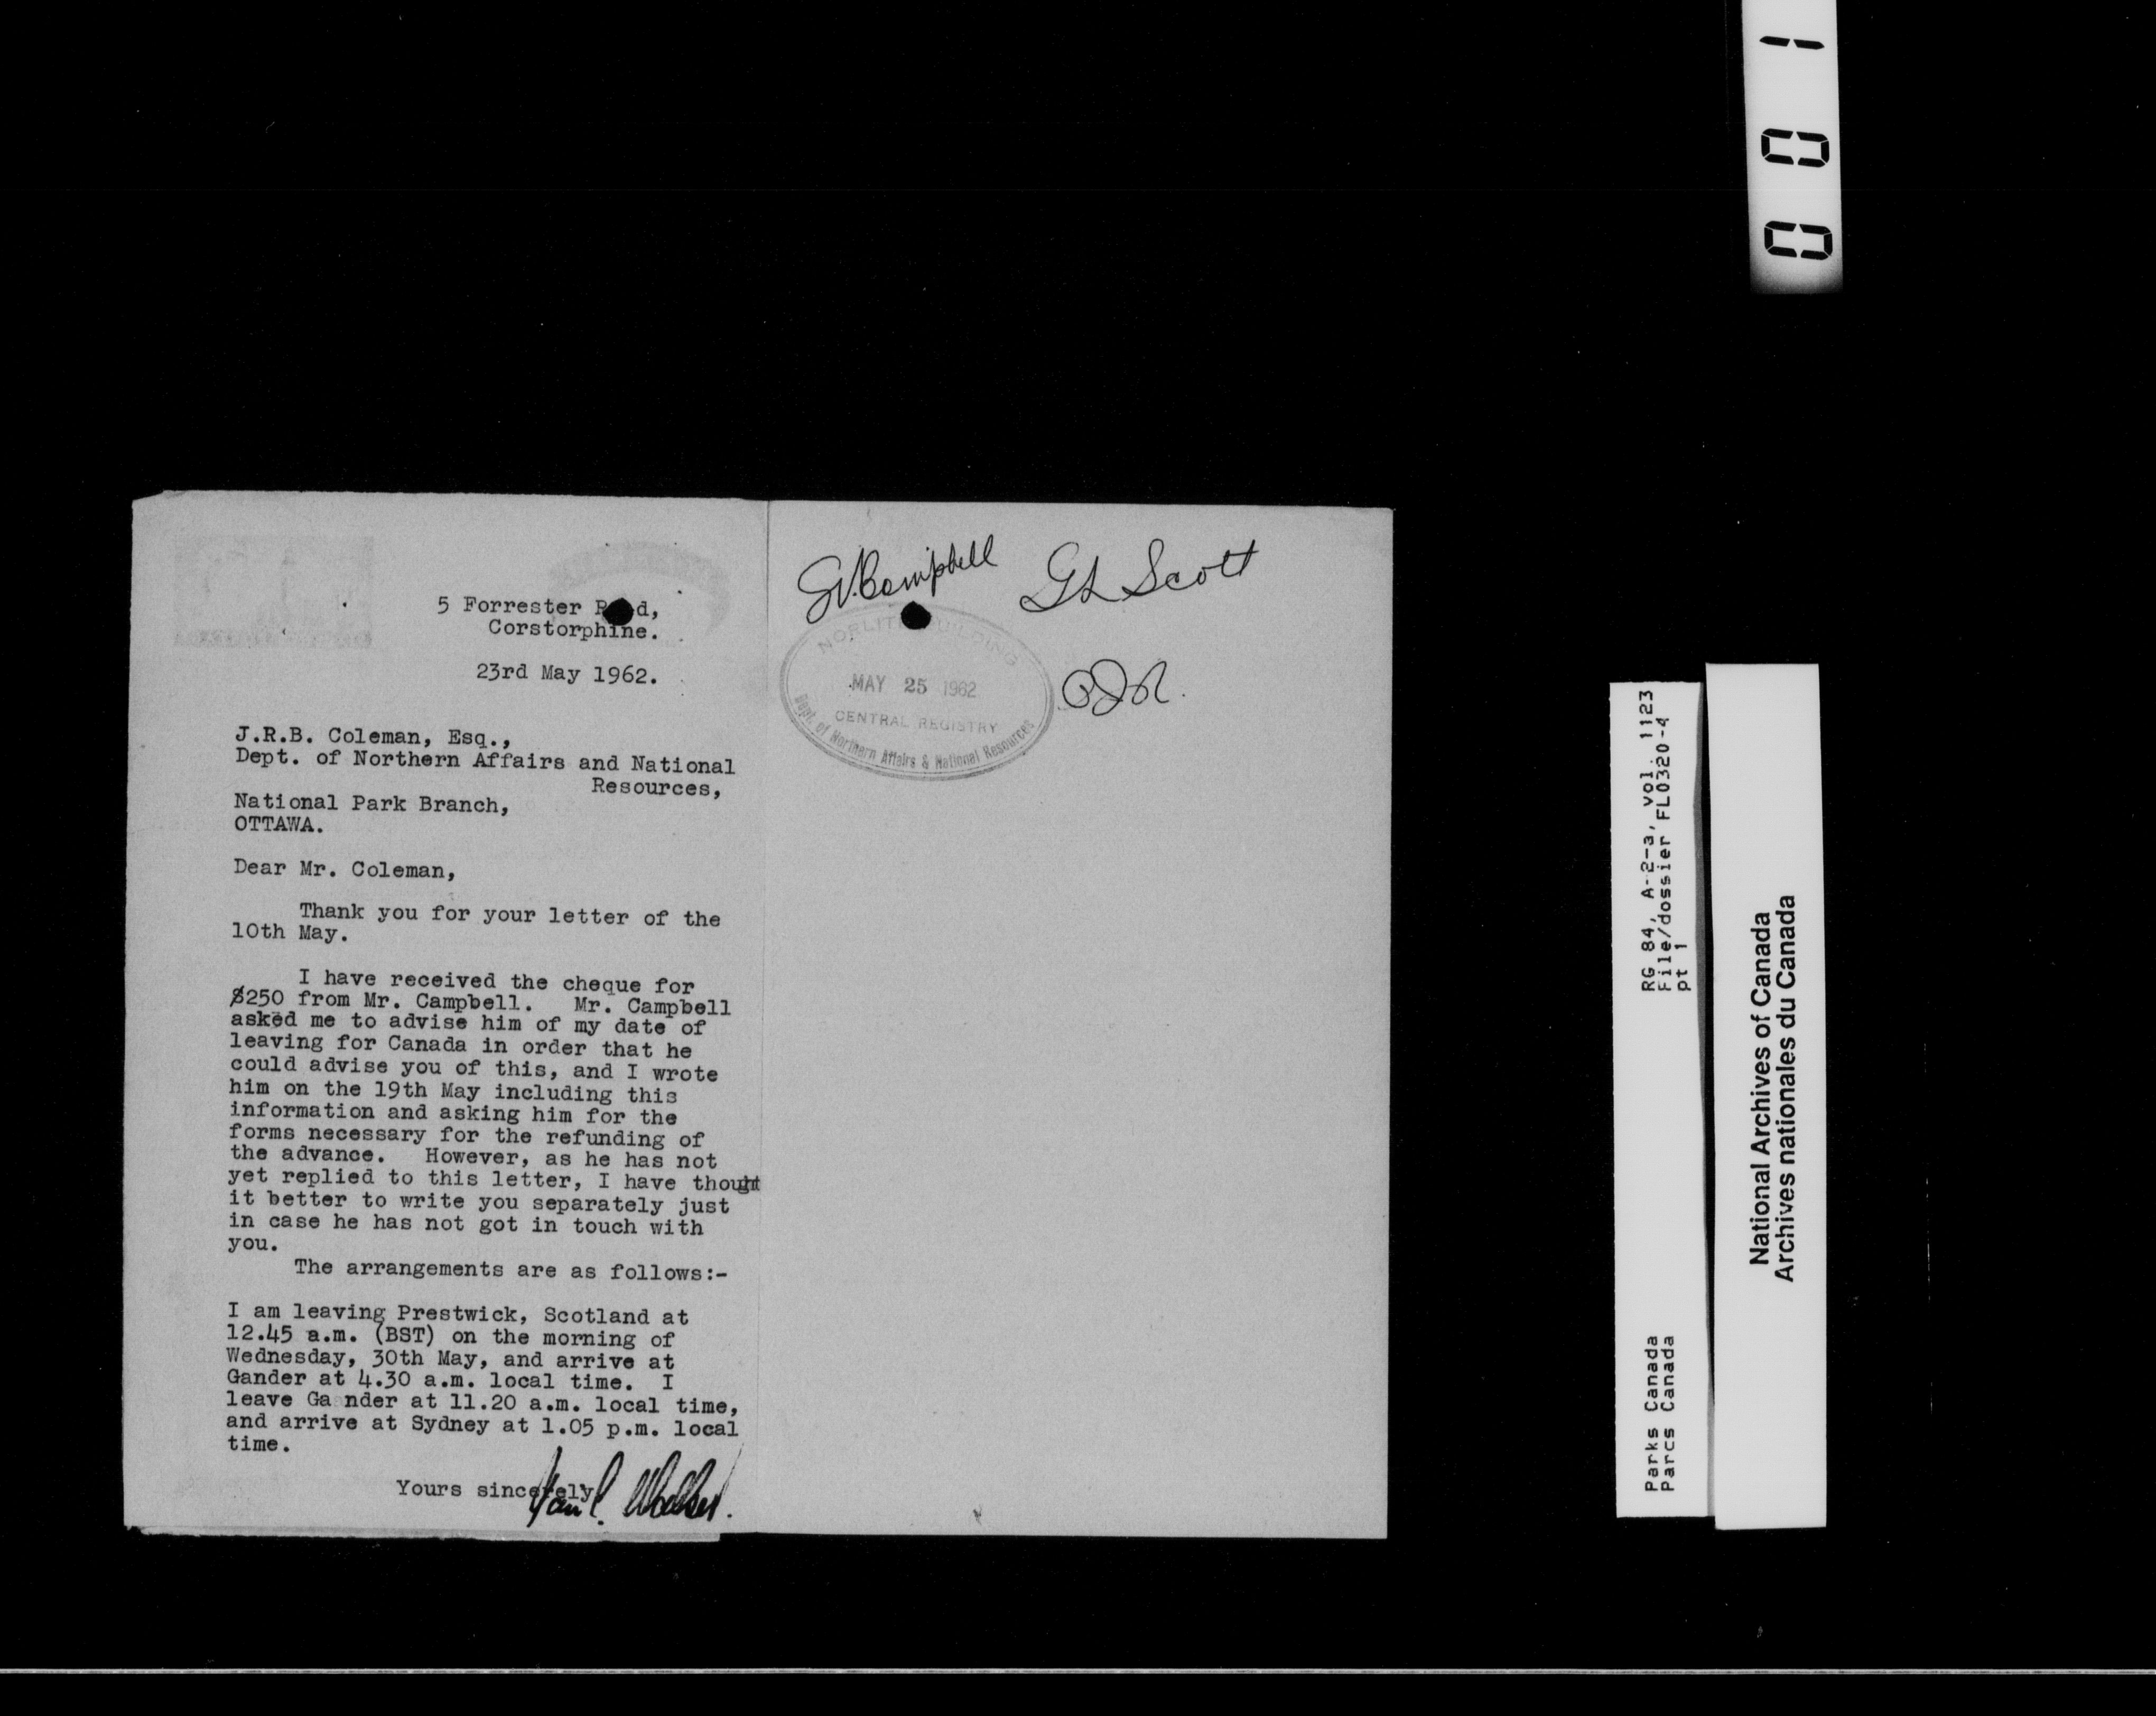 5 Forrester Road,
Corstorphine.
23rd May 1962.
J.R.B. Coleman, Esq.,
Dept. of Northern Affairs and National
Resources,
National Park Branch,
OTTAWA.
Dear Mr. Coleman,
Thank you for your letter of the
10th May.
I have received the cheque for
$250 from Mr. Campbell. Mr. Campbell
asked me to advise him of my date of
leaving for Canada in order that he
could advise you of this, and I wrote
him on the 19th May including this
information and asking him for the
forms necessary for the refunding of
the advance. However, as he has not
yet replied to this letter, I have thought
it better to write you separately just
in case he has not got in touch with
you.
The arrangements are as follows:-
I am leaving Prestwick, Scotland at
12.45 a.m. (BST) on the morning of
Wednesday, 30th May, and arrive at
Gander at 4.30 a.m. local time. I
leave Ga nder at 11.20 a.m. local time,
and arrive at Sydney at 1.05 p.m. local
time.
Yours sincerely
Campbell
Scott
NORLITE BUILDING
MAY 25 1962
CENTRAL REGISTRY
Dept. of Northern Affairs & National Resources
001
RG 84, A-2-a, vol. 1123
File/dossier FL0320-4
pt 1
Parks Canada
Parcs Canada
National Archives of Canada
Archives nationales du Canada